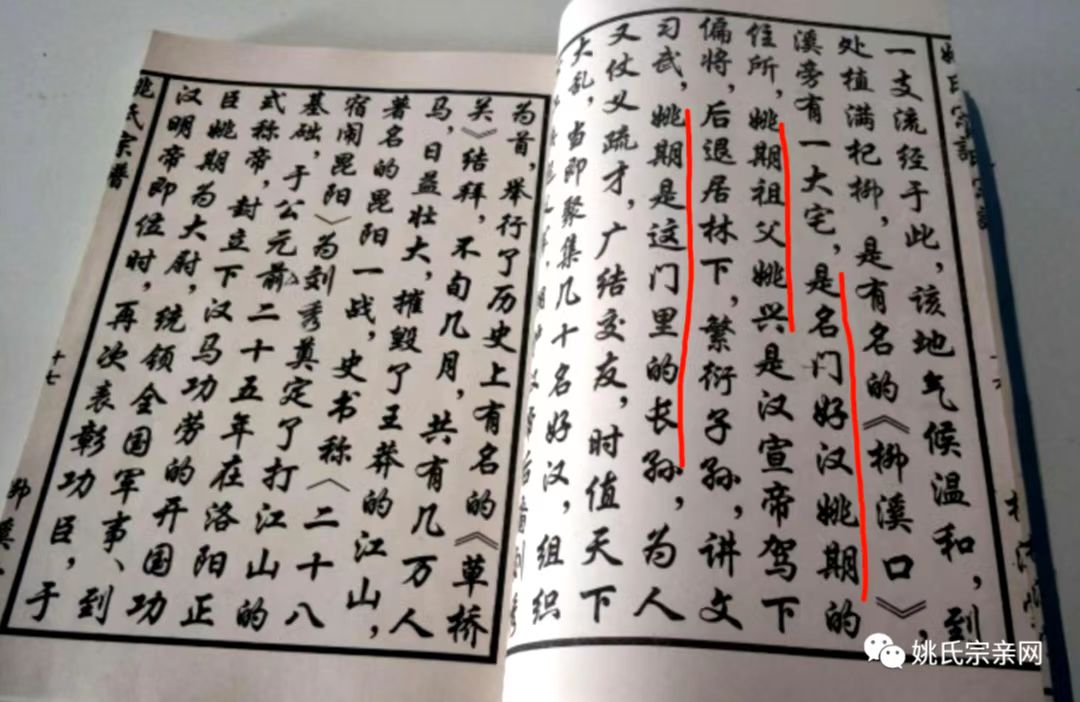 一支流经于此，该地气候温和，到
处植满杞柳，是有名的《柳溪口》，
溪旁有一大宅，是名门好汉姚期的
住所，姚期祖父姚兴是汉宣帝驾下
偏将，后退居林下，繁衍子孙，讲文
习武，姚期是这门里的长孙，为人
又仗义疏才，广结交友，时值天下
大乱，当即聚集几十名好汉，组织
为首，举行了历史上有名的《草桥
关》结拜，不旬几月，共有几万人
马，日益壮大，摧毁了王莽的江山，
著名的昆阳一战，史书称《二十八
宿闹昆阳》为刘秀奠定了打江山的
基础，于公元前二十五年在洛阳正
式称帝，封立下汉马功劳的开国功
臣姚期为大尉，统领全国军事、到
汉明帝即位时，再次表彰功臣，于
姚氏宗普
十七
姚氏宗亲网